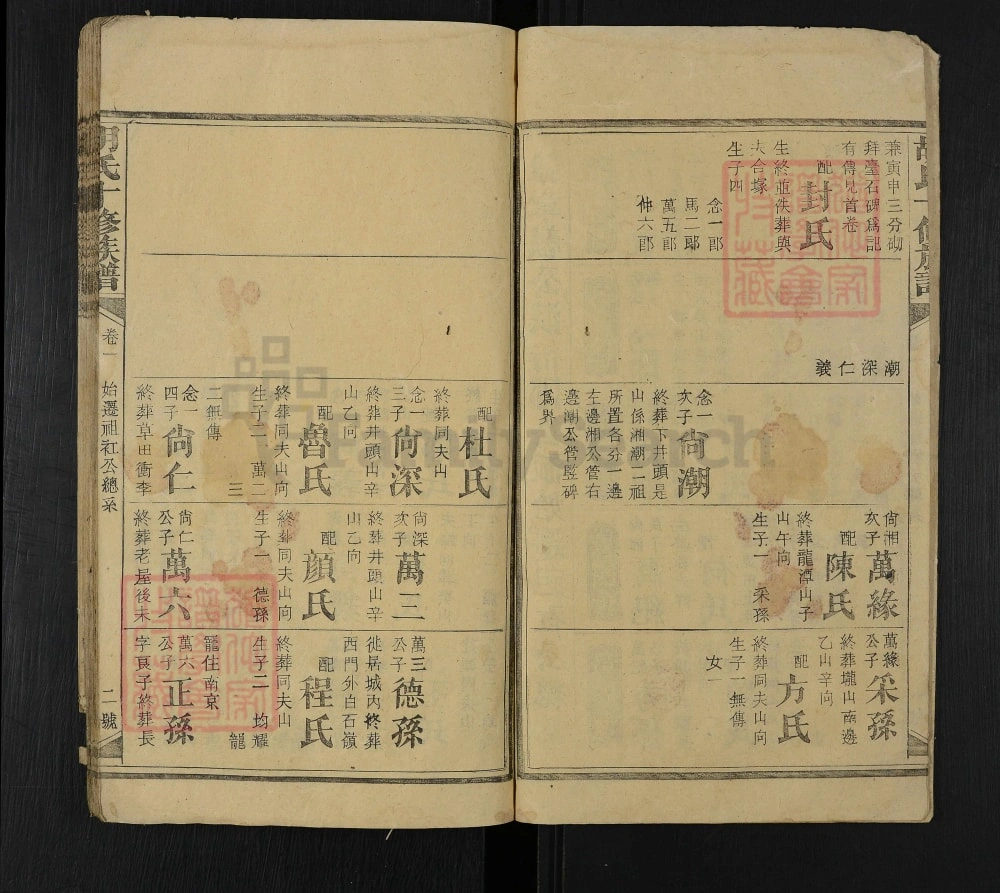 兼寅申三分砌
拜臺石碑爲記
有傳見首卷
配封氏
生終並佚葬與
夫合塚
生子四
念一郎
馬二郎
萬五郎
仲六郎
潮深仁義
念一次子尙潮
終葬下井頭是
山係湘潮二祖
所置各分一邊
左邊湘公管右
邊潮公管竪碑
爲界
尙湘次子萬緣
配陳氏
終葬龍潭山子
山午向
生子一 采孫
萬緣公子采孫
終葬壠山南邊
乙山辛向
配方氏
終葬同夫山向
生子一無傳
女一
胡氏十修族譜
卷一
始遷祖社公總系
二號
配杜氏
終葬同夫山
念一三子尙深
終葬井頭山辛
山乙向
配魯氏
終葬同夫山向
生子二 萬二
三
二無傳
念一四子尙仁
終葬草田衝李
尙深次子萬三
終葬井頭山辛
山乙向
配顔氏
終葬同夫山向
生子一 德孫
尙仁公子萬六
終葬老屋後未
萬三公子德孫
徙居城內終葬
西門外白石嶺
配程氏
終葬同夫山
生子二 均耀
龍
龍住南京
萬六公子正孫
字貢子終葬長
FamilySearch